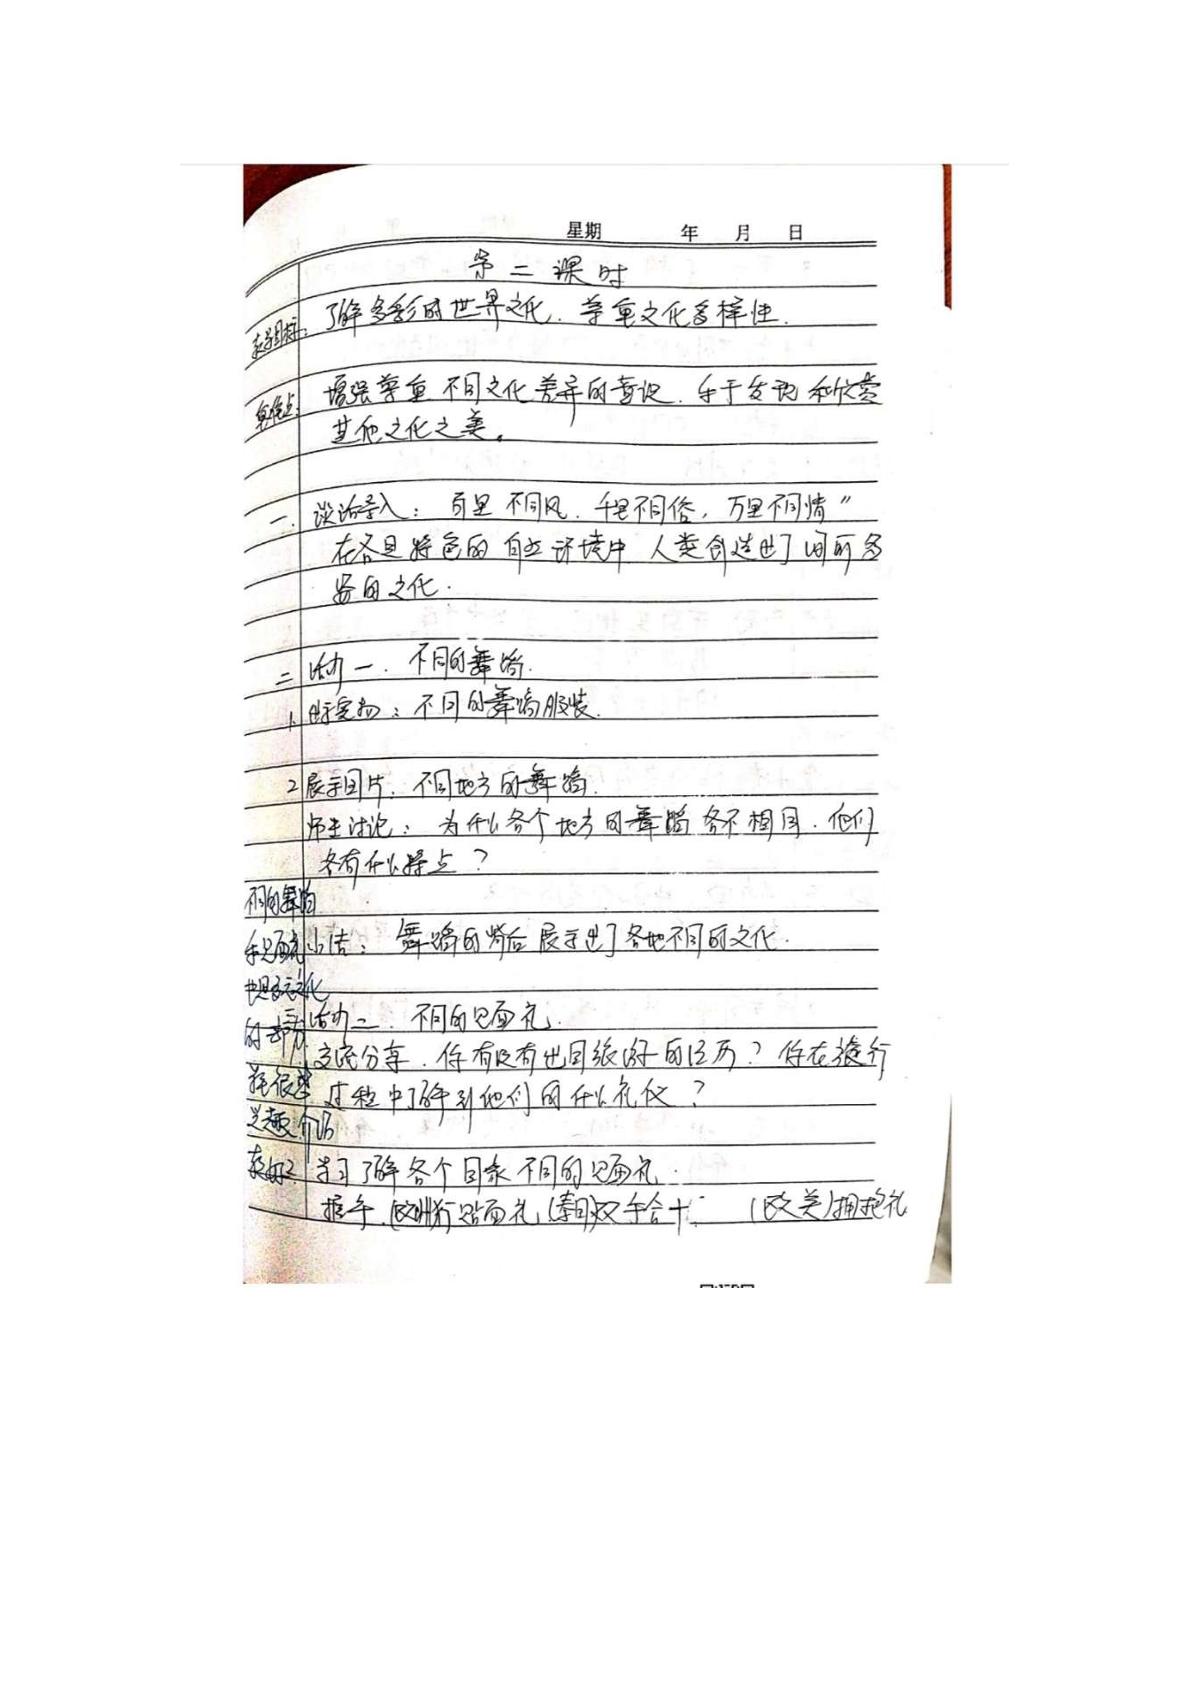 星期 年 月 日
第二课时
教学目标: 了解多彩的世界文化.尊重文化多样性.
重难点: 增强尊重不同文化差异的意识.乐于发现和欣赏
其他文化之美。
一. 谈话导入: 百里不同风.千里不同俗,万里不同情”
在各具特色的自然环境中 人类创造出了
的文化.
二 活动一. 不同的舞蹈.
1. 出示实物: 不同的舞蹈服装.
2 展示图片. 不同地方的舞蹈.
师生讨论: 为什么各个地方的舞蹈各不相同.他们
各有什么特点?
不同的舞蹈
和见面礼
小结: 舞蹈的背后展示出了各地不同的文化.
文化
三 活动二. 不同的见面礼.
的一部分
交流分享.你有没有出国旅游的经历?你在旅行
过程中了解到他们的什么礼仪?
孩很感
兴趣 介绍
学习了解各个国家不同的见面礼.
握手.(欧洲)行贴面礼(泰国)双手合十. (欧美)拥抱礼